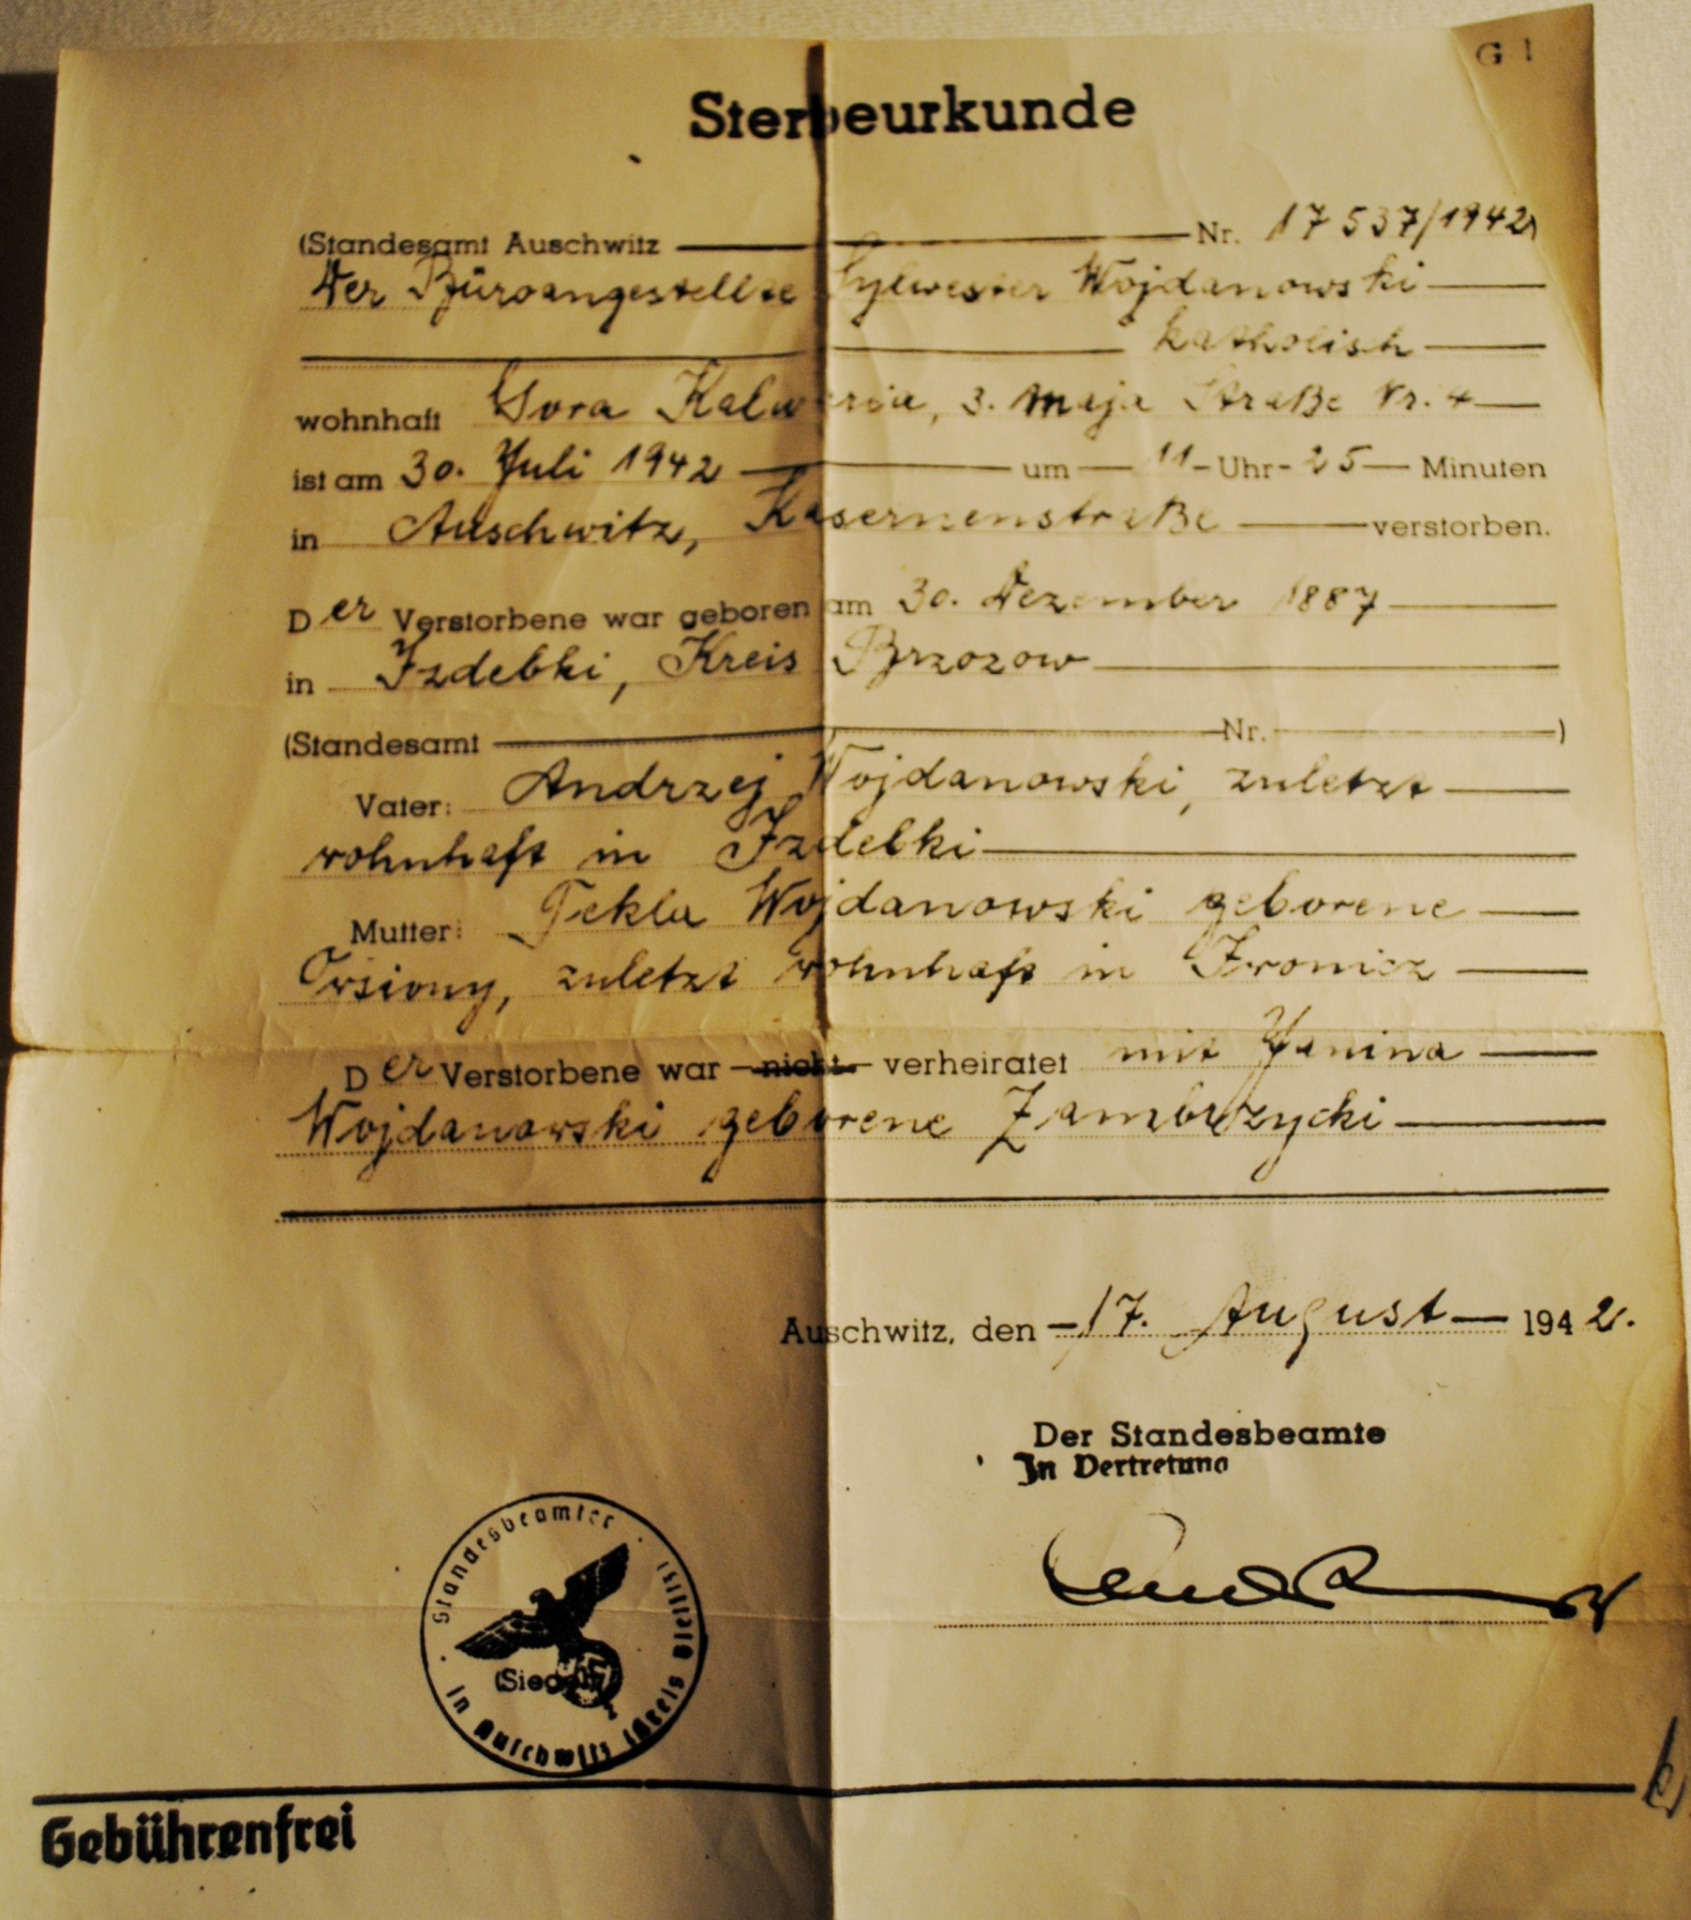 G 1
Sterbeurkunde
(Standesamt Auschwitz Nr. 17 537/1942
Der Büroangestellte Sylwester Wojdanowski
katholisch
wohnhaft Gora Kalwaria, 3. Maja Straße Nr. 4
ist am 30. Juli 1942 um 11 Uhr 25 Minuten
in Auschwitz, Kasernenstraße verstorben.
Der Verstorbene war geboren am 30. Dezember 1887
in Izdebki, Kreis Brzozow
(Standesamt Nr. )
Vater: Andrzej Wojdanowski, zuletzt
wohnhaft in Izdebki
Mutter: Tekla Wojdanowski geborene
zuletzt wohnhaft in Iwonicz
Der Verstorbene war nicht verheiratet mit Janina
Wojdanowski geborene Zambrzycki
Auschwitz, den 17. August 1942.
Der Standesbeamte
In Vertretung
Standesbeamter
in Auschwitz (Kreis Bielitz)
(Siegel)
Gebührenfrei